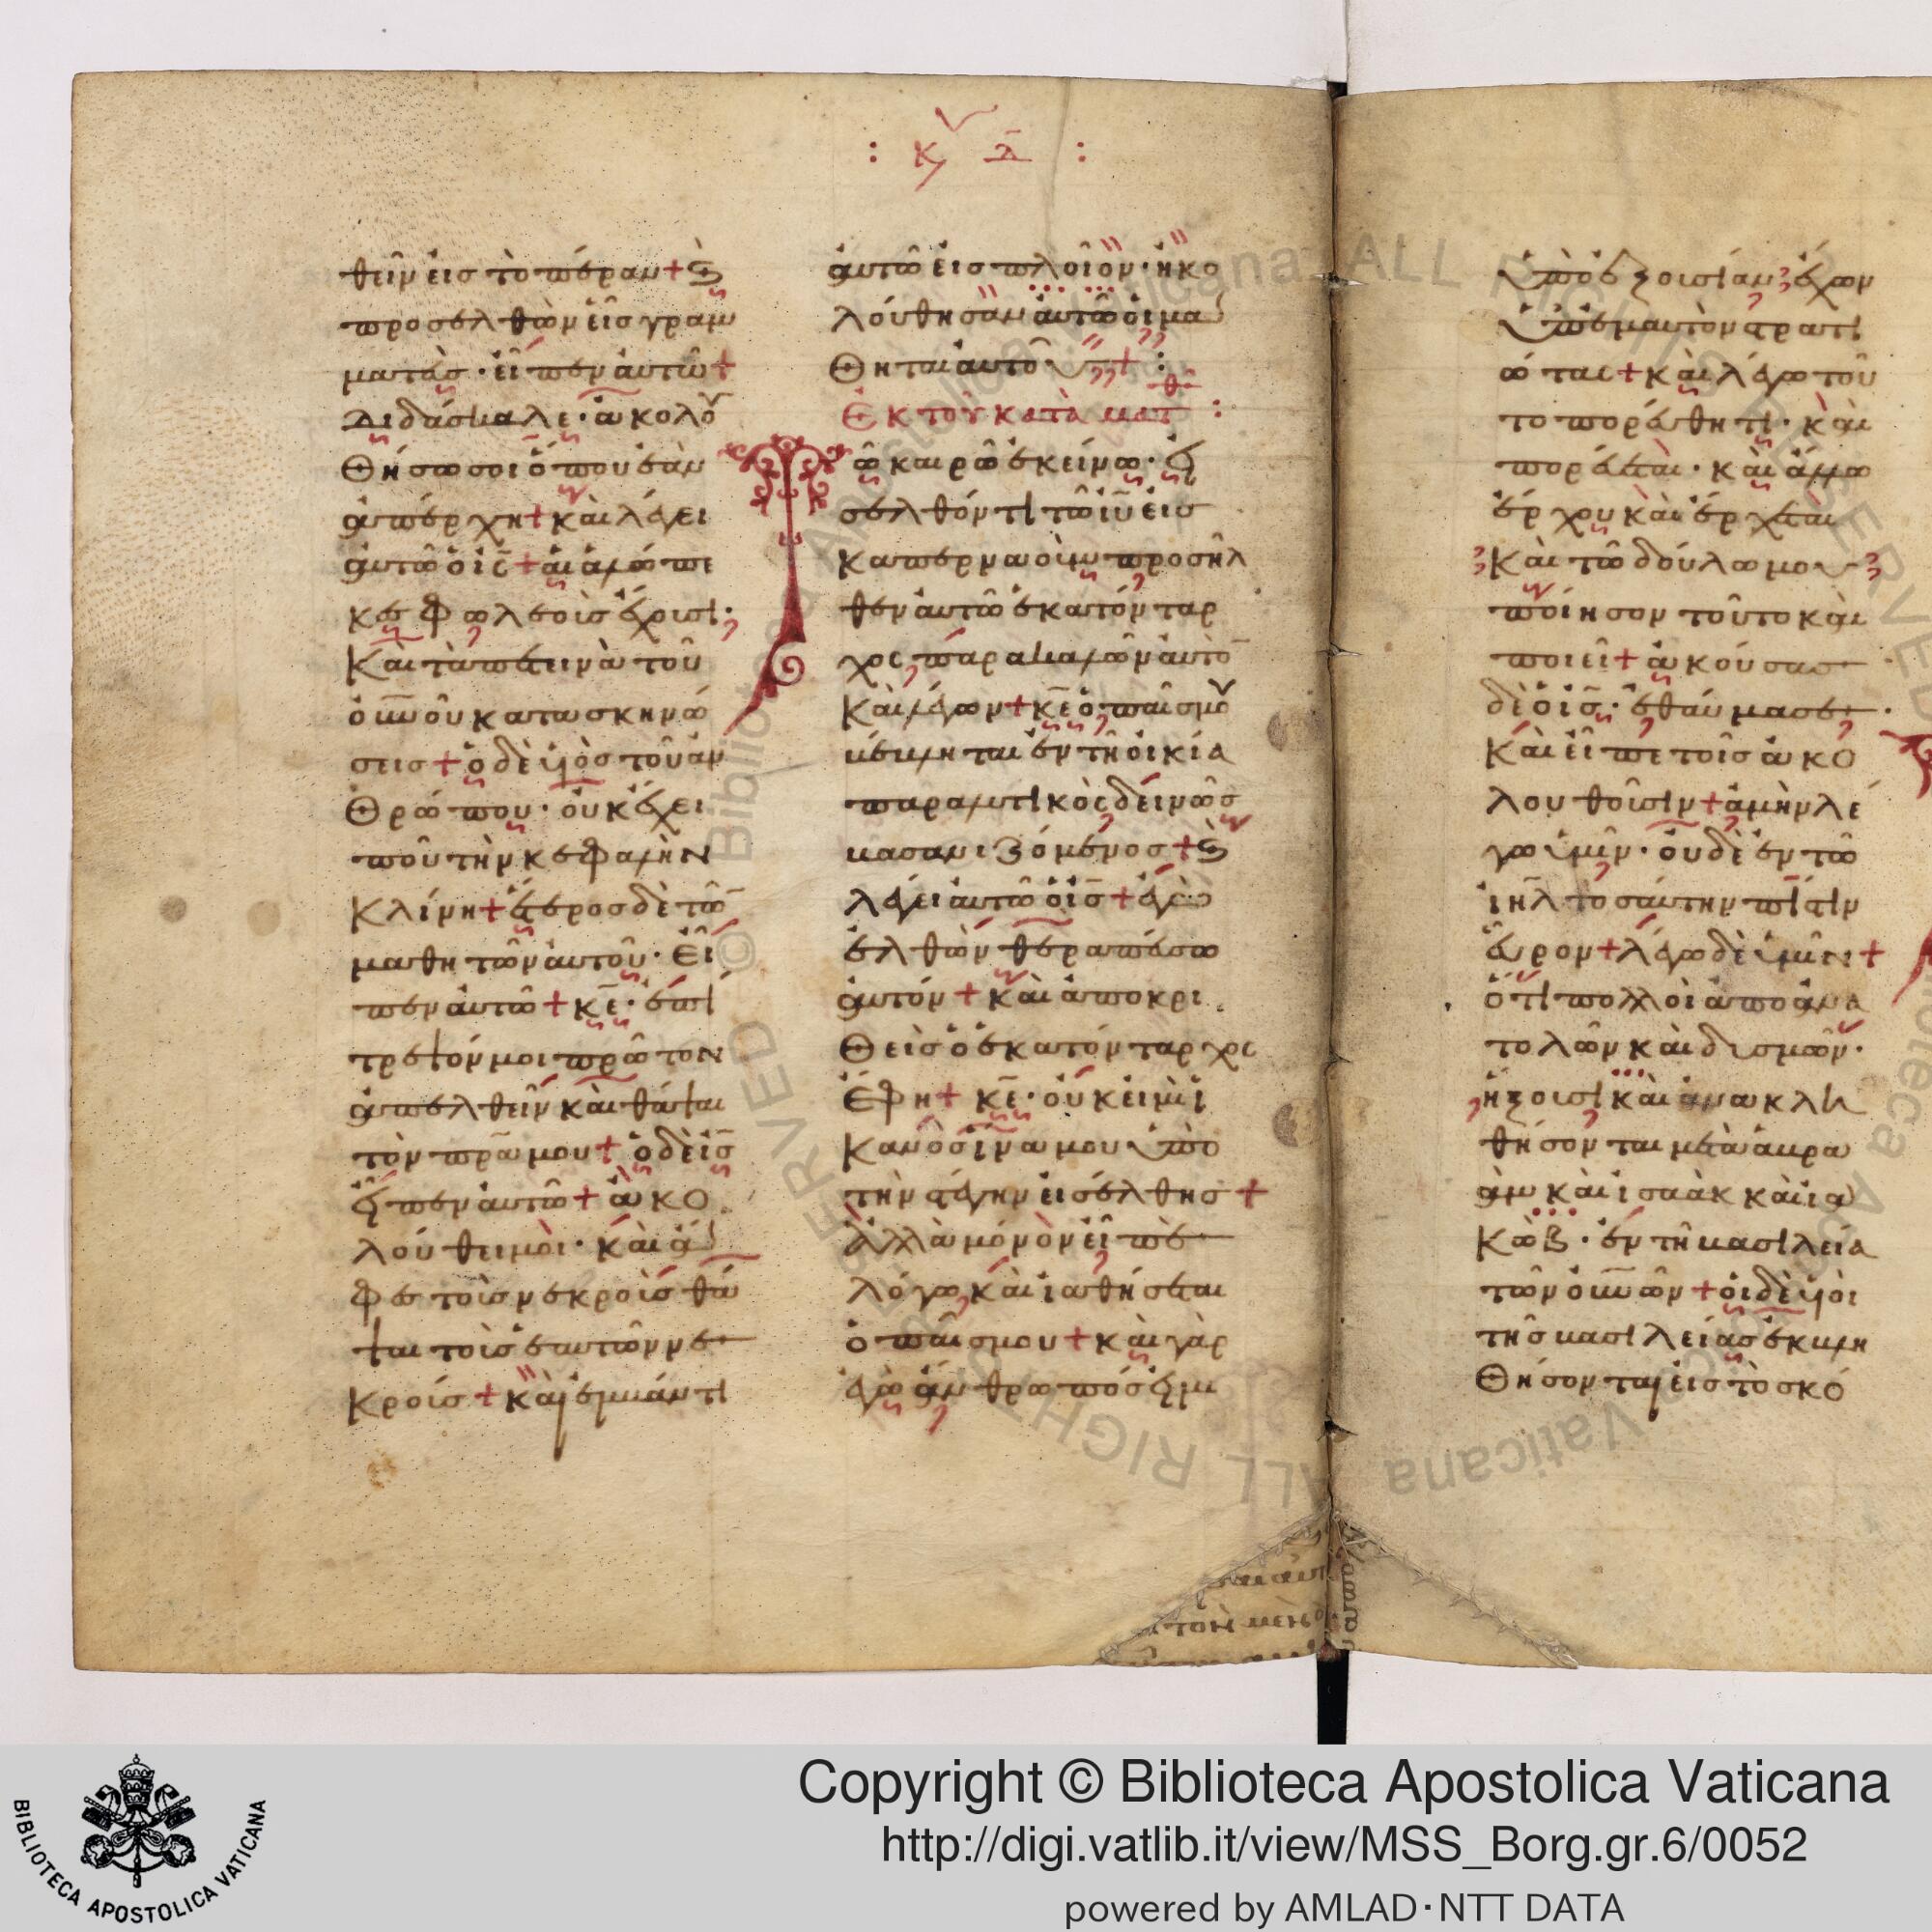 : Κυ Δ :
θεῖν εἰς τὸ πέραν + ϗ
προσελθὼν εἷς γραμ
ματεὺς · εἶπεν αὐτῶ +
διδάσκαλε · ἀκολου
θήσω σοι ὅπου ἐὰν
ἀπέρχη + καὶ λέγει
αὐτῶ ὁ ἰς + αἱ ἀλώπε
κες φωλεοὺς ἔχουσι ·
Καὶ τὰ πετεινὰ τοῦ
οὐνοῦ κατασκηνώ
σεις + ὁ δὲ υἱὸς τοῦ ἀν
θρώπου · οὐκ ἔχει
ποῦ τὴν κεφαλὴν
κλίνη + ἕτερος δὲ τῶ
μαθητῶν αὐτοῦ · εἶ
πεν αὐτῶ + κε · ἐπί
τρεψόν μοι πρῶτον
ἀπελθεῖν καὶ θάψαι
τὸν πρα μου + ὁ δὲ ις
εἶπεν αὐτῶ + ἀκο
λούθει μοι · καὶ ἄ
φες τοὺς νεκροὺς θά
ψαι τοὺς ἑαυτῶν νε
κρούς + καὶ ἐμβάντι
αὐτῶ εἰς πλοῖον · ἠκο
λούθησαν αὐτῶ οἱ μα
θηταὶ αὐτοῦ + :
Ἐκ τοῦ κατὰ ματθ :
Τῶ καιρῶ ἐκείνω · εἰ
σελθόντι τῶ ιυ εἰς
καπερναοὺμ προσῆλ
θεν αὐτῶ ἑκατόνταρ
χος παρακαλῶν αὐτὸ
καὶ λέγων + κε ὁ παῖς μου
βέβληται ἐν τῆ οἰκία
παραλυτικὸς δεινῶς
βασανιζόμενος + ϗ
λέγει αὐτῶ ὁ ις + ἐγὼ
ἐλθὼν θεραπεύσω
αὐτόν + καὶ ἀποκρι
θεὶς ὁ ἑκατόνταρχος
ἔφη + κε · οὐκ εἰμὶ
ἱκανὸς ἵνα μου ὑπὸ
τὴν στέγην εἰσέλθης +
ἀλλὰ μόνον εἰπὲ
λόγω καὶ ἰαθήσεται
ὁ παῖς μου + καὶ γὰρ
ἐγὼ ἄνθρωπός εἰμι
ὑπὸ ἐξουσίαν ἔχων
ὑπ' ἐμαυτὸν στρατι
ώτας + καὶ λέγω τού
τω πορεύθητι · καὶ
πορεύεται · καὶ ἄλλω
ἔρχου καὶ ἔρχεται
Καὶ τῶ δούλω μου
ποίησον τοῦτο καὶ
ποιεῖ + ἀκούσας
δὲ ὁ ις · ἐθαύμασε ·
Καὶ εἶπε τοῖς ἀκο
λουθοῦσιν + ἀμὴν λέ
γω ὑμῖν · οὐδὲ ἐν τῶ
ιηλ τοσαύτην πίστιν
εὗρον + λέγω δὲ ὑμῖν +
ὅτι πολλοὶ ἀπὸ ἀνα
τολῶν καὶ δυσμῶν ·
ἥξουσι καὶ ἀνακλι
θήσονται μετὰ ἀβρα
ὰμ καὶ ἰσαὰκ καὶ ἰα
κὼβ · ἐν τῆ βασιλεία
τῶν οὐνῶν + οἱ δὲ υἱοὶ
τῆς βασιλείας ἐκβλη
θήσονται εἰς τὸ σκό
τον μὲν
BIBLIOTECA APOSTOLICA VATICANA
Copyright © Biblioteca Apostolica Vaticana
http://digi.vatlib.it/view/MSS_Borg.gr.6/0052
powered by AMLAD·NTT DATA